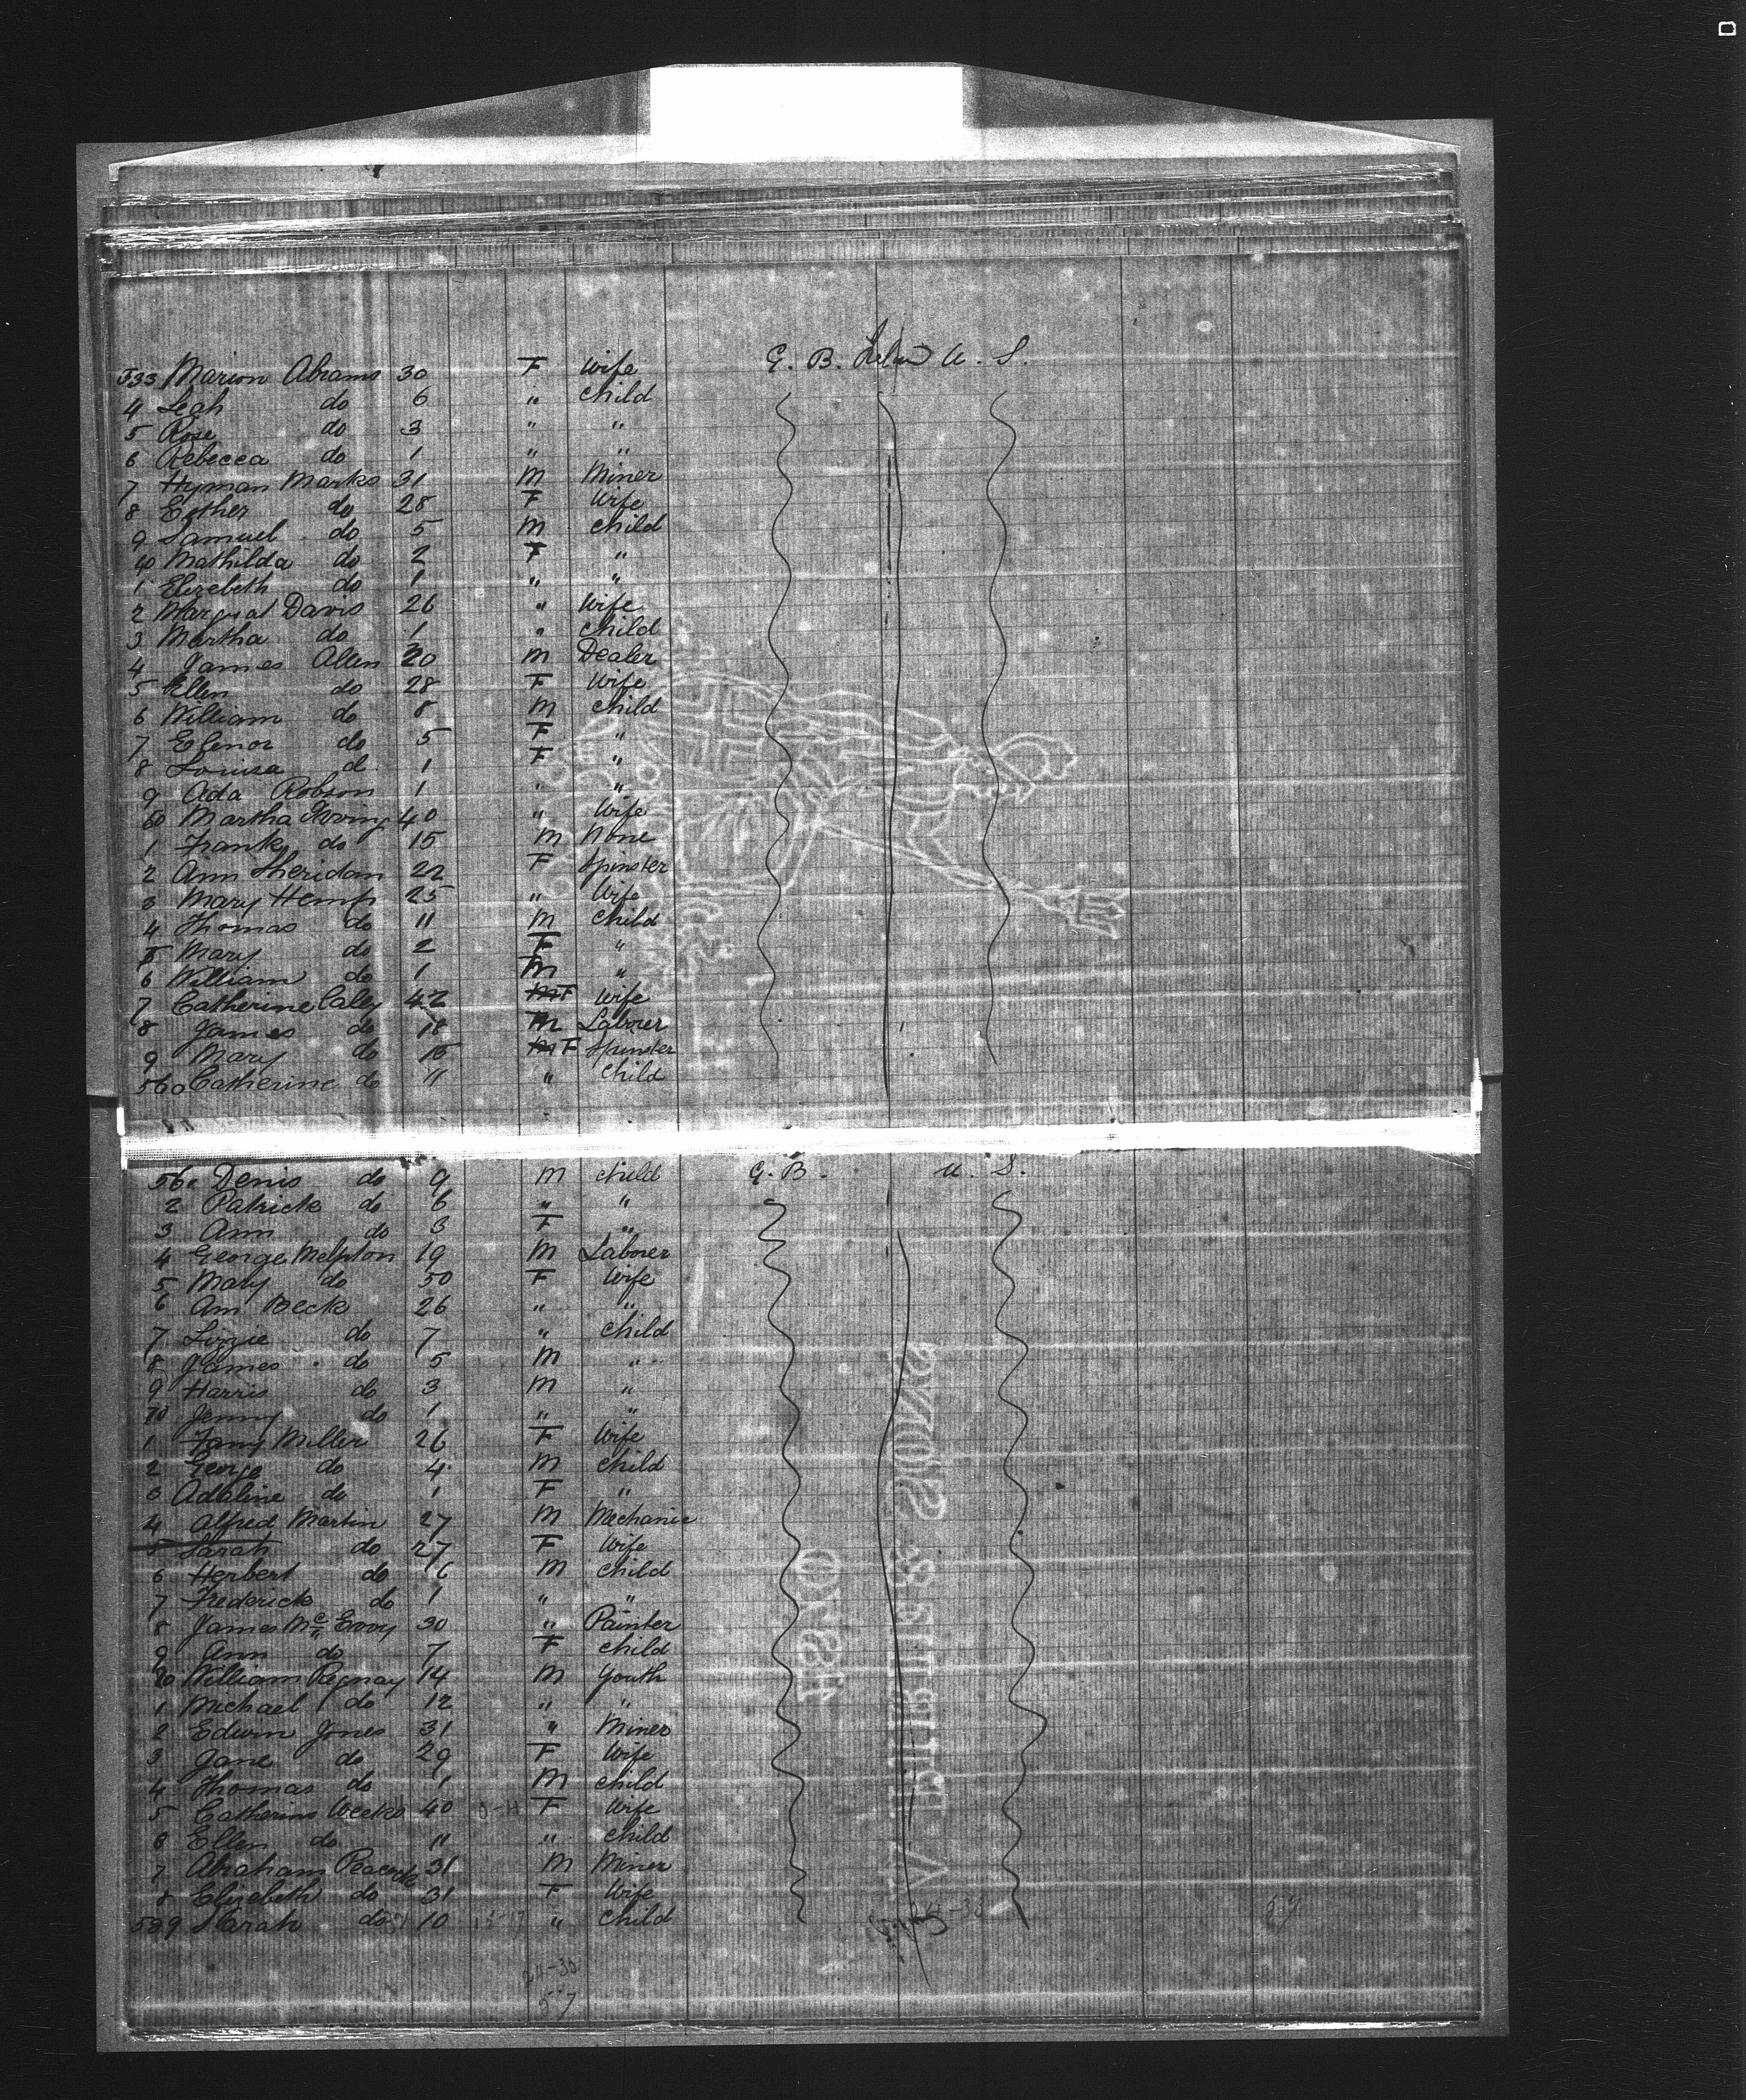 533 Marion Abrams 30 F Wife G. B. U. S.
4 Leah do 6 " Child
5 Rose do 3 " "
6 Rebecca do 1 " "
7 Hyman Marks 31 M Miner
8 Esther do 28 F Wife
9 Samuel do 5 M Child
40 Mathilda do 2 F "
1 Elizebeth do 1 " "
2 Margrat Davis 26 " Wife
3 Martha do 1 " Child
4 James Allen 30 M Dealer
5 Ellen do 28 F Wife
6 William do 8 M Child
7 Elenor do 5 F "
8 Louisa d 1 F "
9 Ada Robson 1 " "
Martha 40 " Wife
1 Frank do 15 M None
2 Ann Sheridan 22 F Spinster
3 Mary Hemp 25 " Wife
4 Thomas do 11 M Child
5 Mary do 2 F "
6 William do 1 M "
7 Catherine Caley 42 F Wife
8 James do 18 M Laborer
9 Mary do 15 F Spinster
560 Catherine do 11 " Child
56 Denis do 9 M Child G. B. U. S.
2 Patrick do 6 " "
3 Ann do 3 F "
4 George 19 M Laborer
5 Mary do 50 F Wife
6 Ann Beck 26 " "
7 Lizzie do 7 " Child
8 James do 5 M "
9 Harris do 3 M "
70 Jenny do 1 " "
1 Fany Miller 26 F Wife
2 George do 4 M Child
3 Adaline do 1 F "
4 Alfred Martin 27 M Mechanic
5 Sarah do 27 F Wife
6 Herbert do 6 M Child
7 Frederick do 1 " "
8 James Mc Evoy 30 " Painter
9 Ann do 7 F Child
80 William 14 M Youth
1 Michael do 12 " "
2 Edwin Jones 31 " Miner
3 Jane do 29 F Wife
4 Thomas do 1 M Child
5 Catherine Weeks 40 F Wife
6 Ellen do 11 " Child
7 Abraham Peacock 31 M Miner
8 Elizebeth do 31 F Wife
589 Sarah do 10 " Child
24-33
57